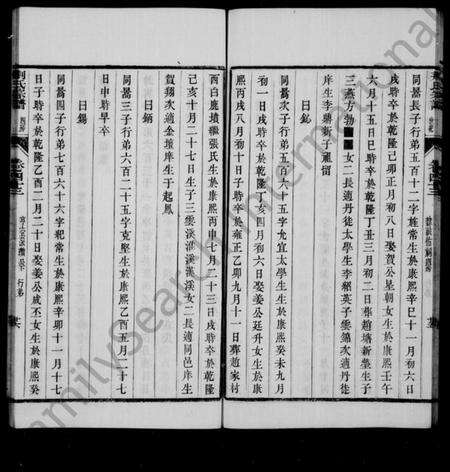 同嵩長子行第五百五十二字旌常生於康熙辛巳十一月初六日
戌時卒於乾隆己卯正月初八日娶賀公星朝女生於康熙壬午
六月十五日巳時卒於乾隆丁丑三月初二日葬趙塘新塋生子
三燕方勃 女二長適丹徒太學生李紹英子 次適丹徒
庠生李 新子禹
日鉉
同嵩次子行第五百七十六字允宜太學生生於康熙癸未九月
初一日戌時卒於乾隆丁亥四月初六日娶姜公廷升女生於康
熙丙戌八月初十日時卒於雍正乙卯九月十一日葬趙家村
酉白鹿墳繼張氏生於康熙丙申七月二十三日戌時卒於乾隆
己亥十月二十日生子三 渓 渓 渓女二長適同邑庠生
賀翔次適金壇庠生于起鳳
日鉐
同嵩三子行第六百二十五字克堅生於康熙乙酉五月二十七
日申時早卒
日錫
同嵩四子行第七百六十六字 常生於康熙辛卯十一月十七
日子時卒於乾隆乙酉二月二十日娶姜公成丕女生於康熙癸
FamilySearch International